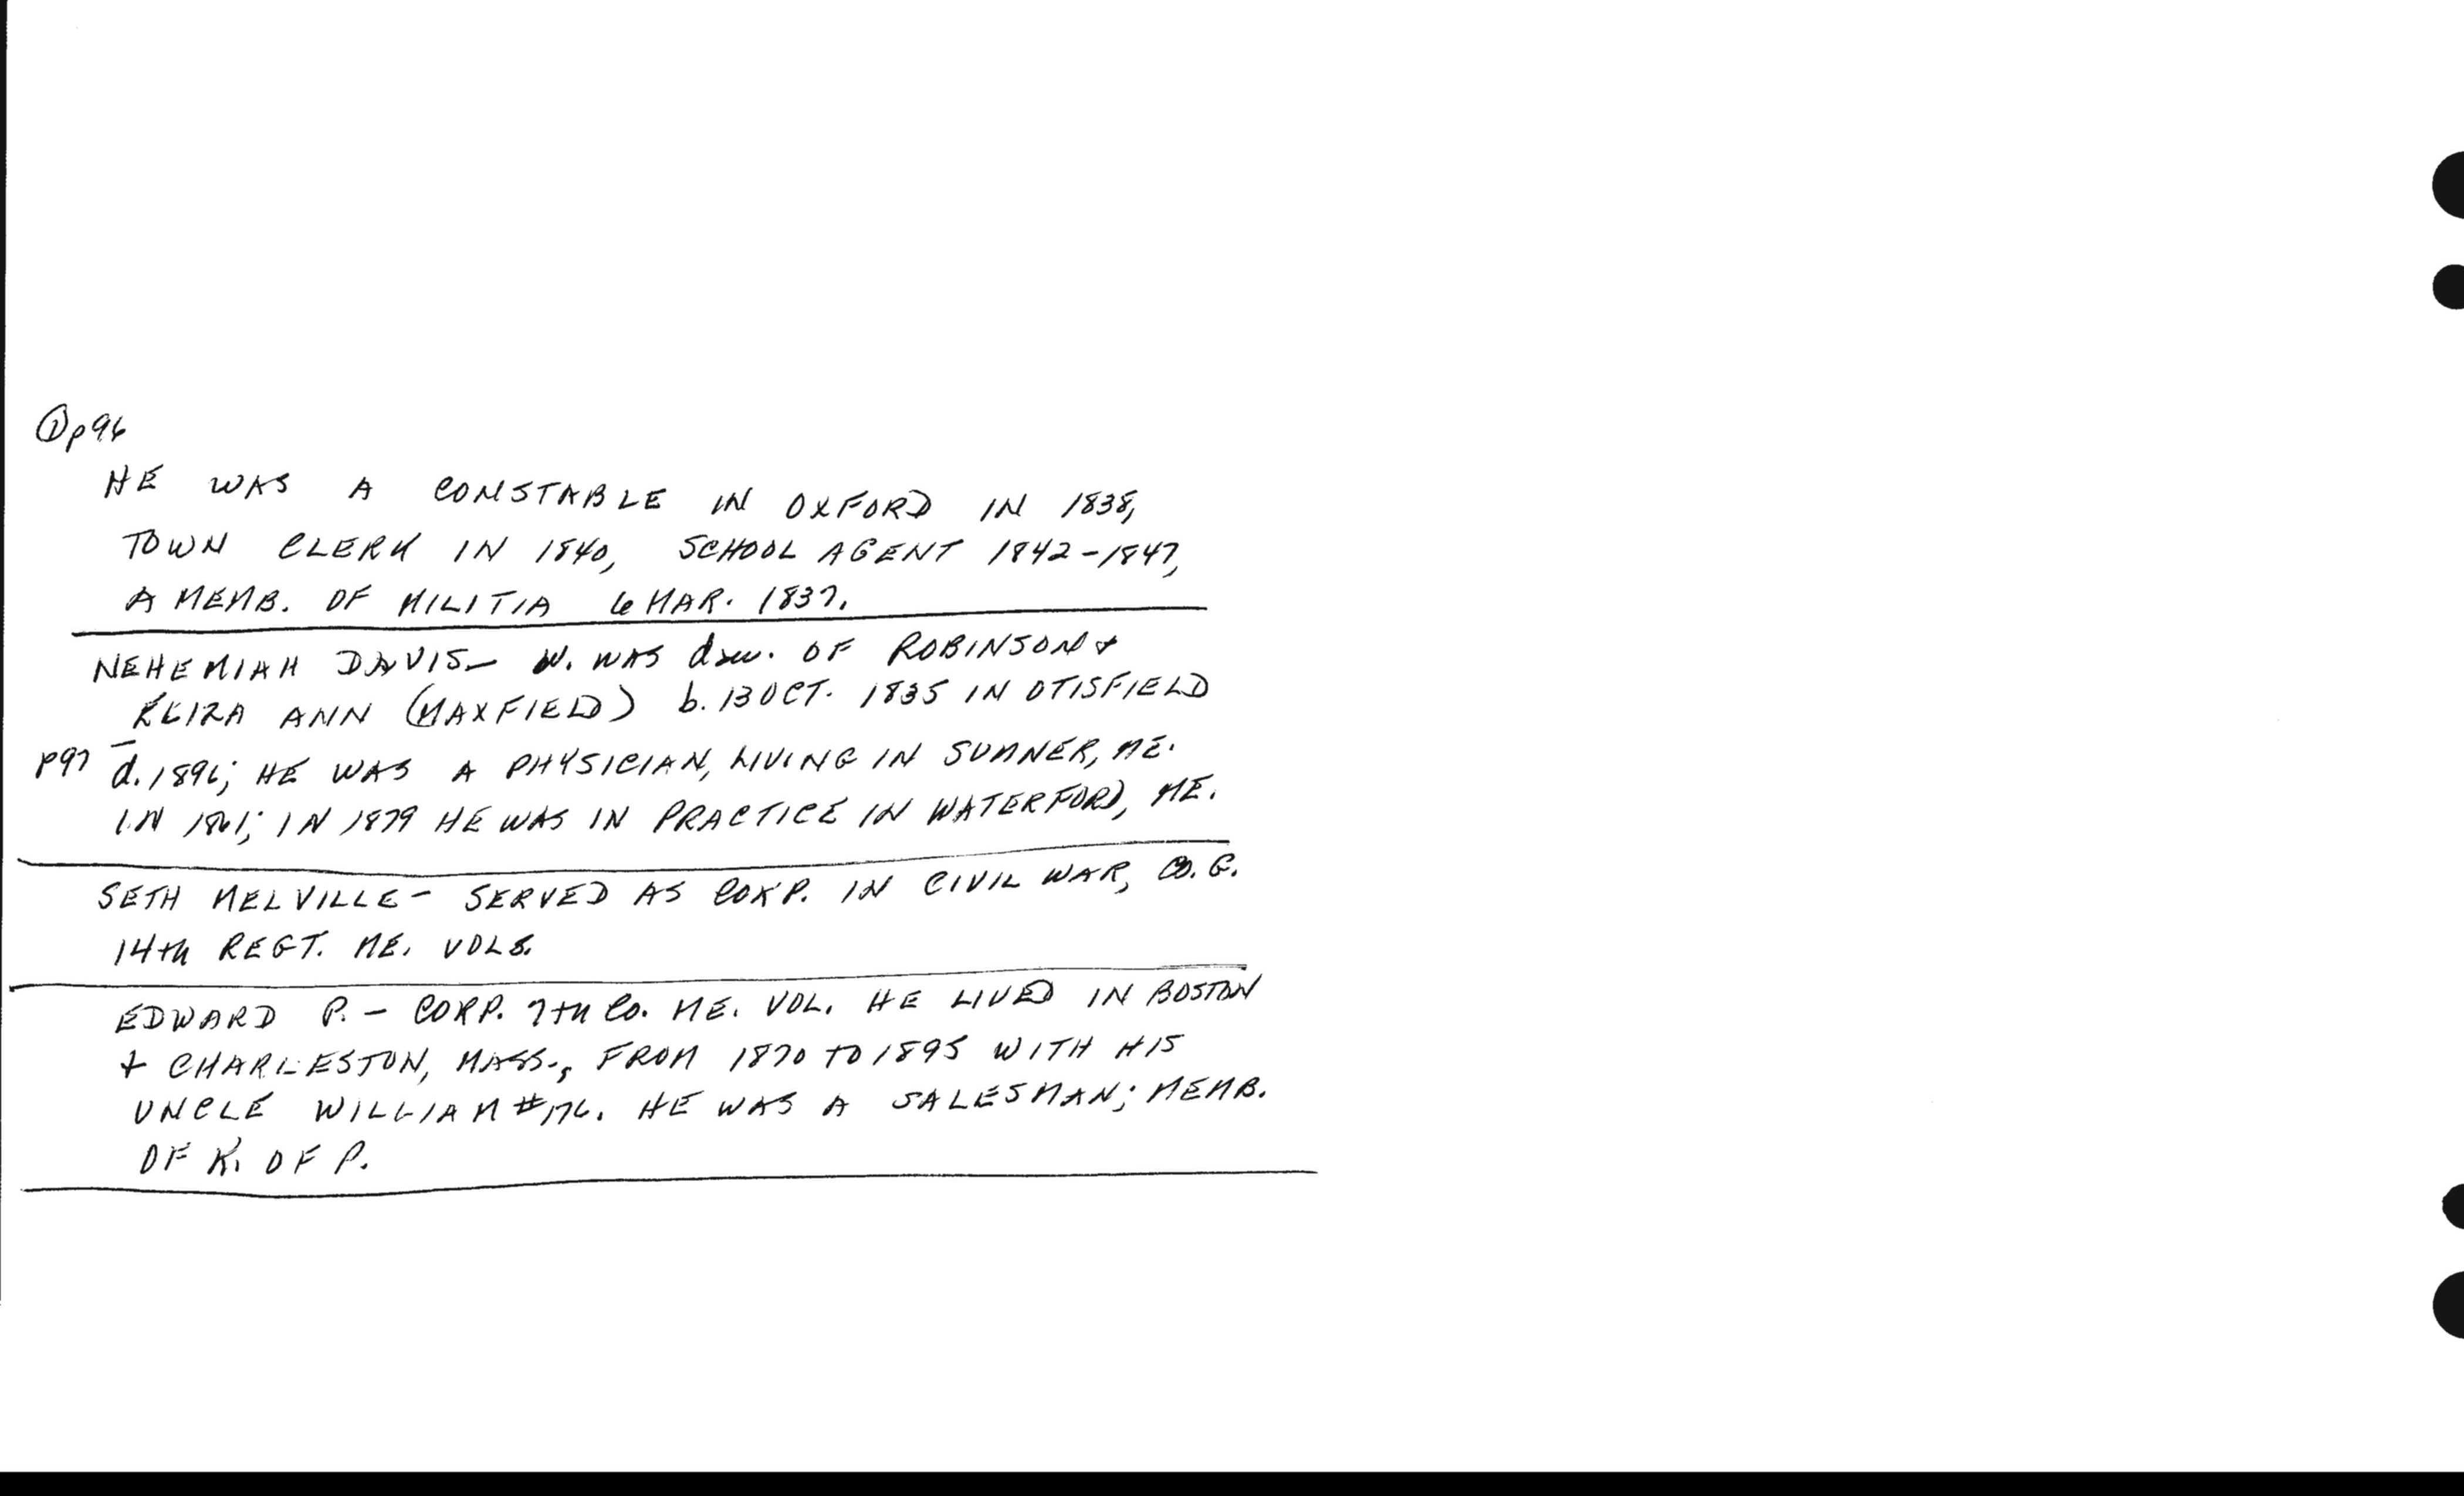 ① p96
HE WAS A CONSTABLE IN OXFORD IN 1838,
TOWN CLERK IN 1840, SCHOOL AGENT 1842-1847,
A MEMB. OF MILITIA 6 MAR. 1837.
NEHEMIAH DAVIS- W. WAS dau. OF ROBINSON &
ELIZA ANN (MAXFIELD) b. 13 OCT. 1835 IN OTISFIELD
p97 d. 1896; HE WAS A PHYSICIAN, LIVING IN SUMNER, ME.
IN 1861; IN 1879 HE WAS IN PRACTICE IN WATERFORD, ME.
SETH MELVILLE - SERVED AS CORP. IN CIVIL WAR, CO. G.
14th REGT. ME. VOLS.
EDWARD P. - CORP. 7th Co. ME. VOL. HE LIVED IN BOSTON
& CHARLESTON, MASS., FROM 1870 TO 1895 WITH HIS
UNCLE WILLIAM #176. HE WAS A SALESMAN; MEMB.
OF K. OF P.